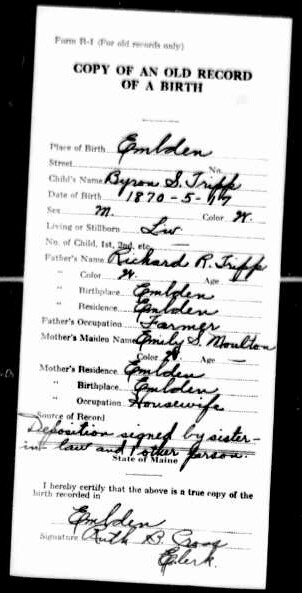 Form R-1 (For old records only)
COPY OF AN OLD RECORD
OF A BIRTH
Place of Birth Embden
Street No.
Child's Name Byron S. Tripp
Date of Birth 1870-5-17
Sex M. Color W.
Living or Stillborn Liv
No. of Child, 1st, 2nd, etc. —
Father's Name Richard R. Tripp
" Color W. Age —
" Birthplace Embden
" Residence Embden
Father's Occupation Farmer
Mother's Maiden Name Emily S. Moulton
Color W. Age —
Mother's Residence Embden
" Birthplace Embden
" Occupation Housewife
Source of Record
Deposition signed by sister-
in-law and 1 other person.
State of Maine
I hereby certify that the above is a true copy of the
birth recorded in
Embden
Signature Ruth B. Cross
Clerk.